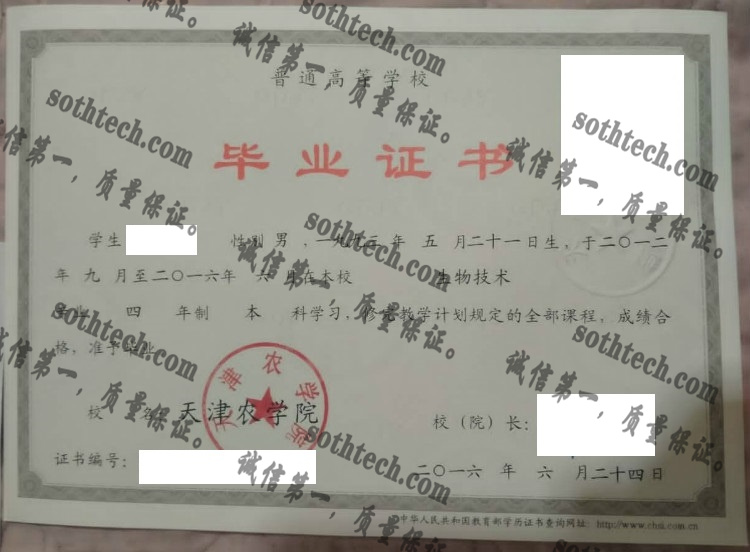 普通高等学校
毕业证书
学生 性别 男，一九九三年 五 月二十一日生，于二〇一二
年 九 月至二〇一六年 六 月在本校 生物技术
专业 四 年制 本 科学习，修完教学计划规定的全部课程，成绩合
格，准予毕业。
校 名： 天津农学院
校（院）长：
证书编号：
二〇一六 年 六 月二十四日
中华人民共和国教育部学历证书查询网址： http://www.chsi.com.cn
天津农学院
sothtech.com
诚信第一，质量保证。
sothtech.com
诚信第一，质量保证。
sothtech.com
诚信第一，质量保证。
sothtech.com
诚信第一，质量保证。
sothtech.com
诚信第一，质量保证。
sothtech.com
诚信第一，质量保证。
sothtech.com
诚信第一，质量保证。